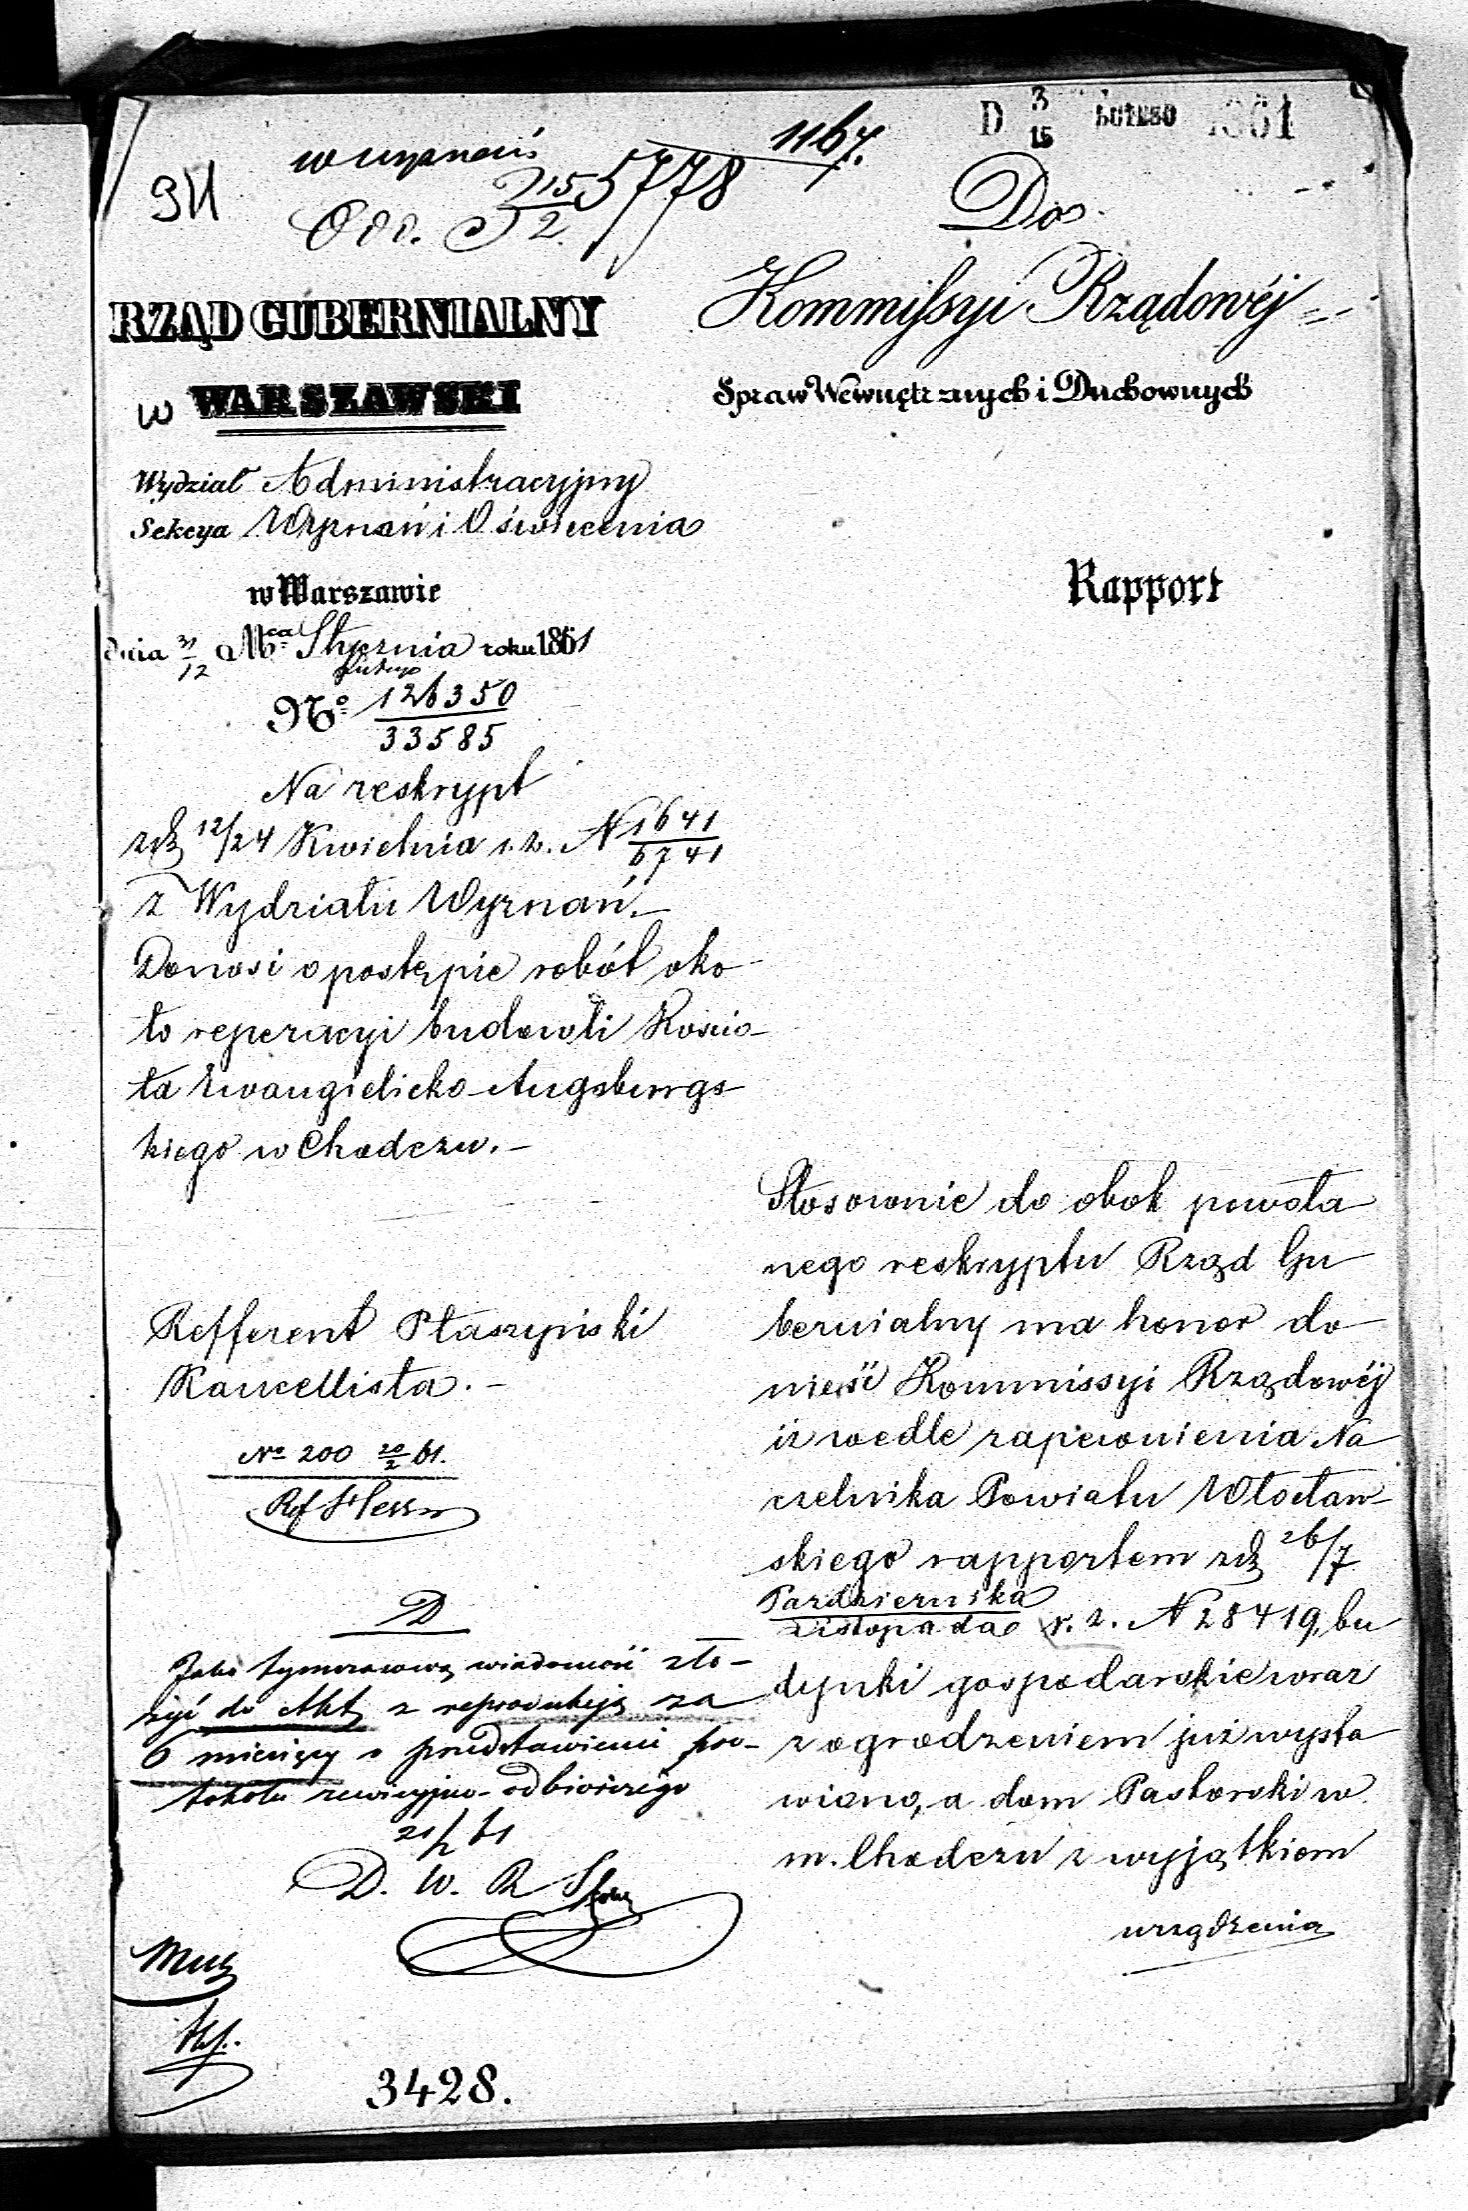 D 3/15 LUTEGO 1861
1167.
w wyznań
5778
911
Odd. 15/2
Do
RZĄD GUBERNIALNY
WARSZAWSKI
Kommissyi Rządowéj
Spraw Wewnętrznych i Duchownych
Wydział Administracyjny
Sekcya Wyznań i Oświecenia
w Warszawie
Rapport
dnia 31/12 Mca Stycznia roku 1861
Lutego
No 126350/33585
Na reskrypt
zdz 12/24 Kwietnia r. z. N 1641/6741
z Wydziału Wyznań.–
Donosi o postępie robót oko
ło reperacyi budowli Kościo–
ła Ewangielicko-Augsburgs
kiego w Chodczu.–
Refferent Ptaszyński
Kancellista.–
No 200 20/2 61.
Ref
D
Jako tymczasową wiadomość zło–
żyć do Akt z reprodukcją za
6 miesięcy o przedstawienie pro–
tokółu rewizyjno-odbiorczego
21/2 61
D. W. R
3428.
Stosownie do obok powoła
nego reskryptu Rząd Gu
bernialny ma honor do
nieść Kommissyi Rządowéj
iż wedle zapewnienia Na
czelnika Powiatu Włocław–
skiego rapportem zdz 26/7
Października/Listopada r. z. N 28419, bu
dynki gospodarskie wraz
z ogrodzeniem już wysta
wiono, a dom Pastorski w
m. Chodczu z wyjątkiem
urządzenia